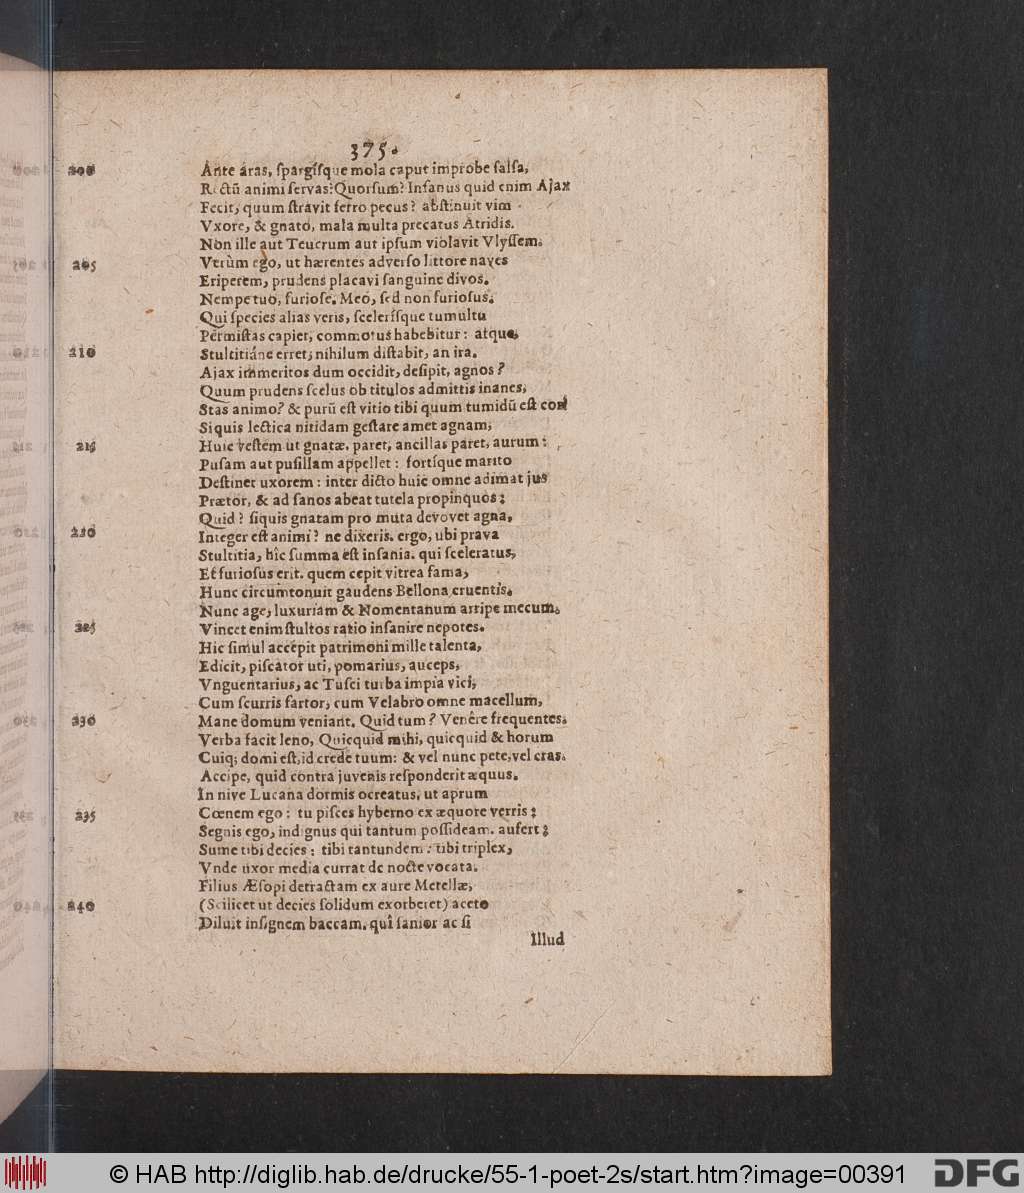 375.
200 Ante aras, spargisque mola caput improbe salsa,
Rectū animi servas? Quorsum? Insanus quid enim Ajax
Fecit, quum stravit ferro pecus? abstinuit vim
Vxore, & gnato, mala multa precatus Atridis.
Non ille aut Teucrum aut ipsum violavit Vlyssem.
205 Verùm ego, ut hærentes adverso littore naves
Eriperem, prudens placavi sanguine divos.
Nempe tuo, furiose. Meo, sed non furiosus.
Qui species alias veris, scelerisque tumultu
Permistas capiet, commotus habebitur: atque,
210 Stultitiáne erret, nihilum distabit, an ira.
Ajax immeritos dum occidit, desipit, agnos?
Quum prudens scelus ob titulos admittis inanes,
Stas animo? & purū est vitio tibi quum tumidū est cor?
Siquis lectica nitidam gestare amet agnam,
215 Huic vestem ut gnatæ, paret, ancillas paret, aurum:
Pusam aut pusillam appellet: fortíque marito
Destinet uxorem: inter dicto huic omne adimat jus
Prætor, & ad sanos abeat tutela propinquos:
Quid? siquis gnatam pro muta devovet agna,
220 Integer est animi? ne dixeris. ergo, ubi prava
Stultitia, hîc summa est insania. qui sceleratus,
Et furiosus erit. quem cepit vitrea fama,
Hunc circumtonuit gaudens Bellona cruentis.
Nunc age, luxuriam & Nomentanum arripe mecum.
225 Vincet enim stultos ratio insanire nepotes.
Hic simul accepit patrimoni mille talenta,
Edicit, piscator uti, pomarius, auceps,
Vnguentarius, ac Tusci turba impia vici,
Cum scurris fartor, cum Velabro omne macellum,
230 Mane domum veniant. Quid tum? Venêre frequentes.
Verba facit leno, Quicquid mihi, quicquid & horum
Cuiq; domi est, id crede tuum: & vel nunc pete, vel cras.
Accipe, quid contra juvenis responderit æquus.
In nive Lucana dormis ocreatus, ut aprum
235 Cœnem ego: tu pisces hyberno ex æquore verris:
Segnis ego, indignus qui tantum possideam. aufert:
Sume tibi decies: tibi tantundem: tibi triplex,
Vnde uxor media currat de nocte vocata.
Filius Æsopi detractam ex aure Metellæ,
240 (Scilicet ut decies solidum exorberet) aceto
Diluit insignem baccam. quî sanior ac si
Illud
© HAB http://diglib.hab.de/drucke/55-1-poet-2s/start.htm?image=00391
DFG